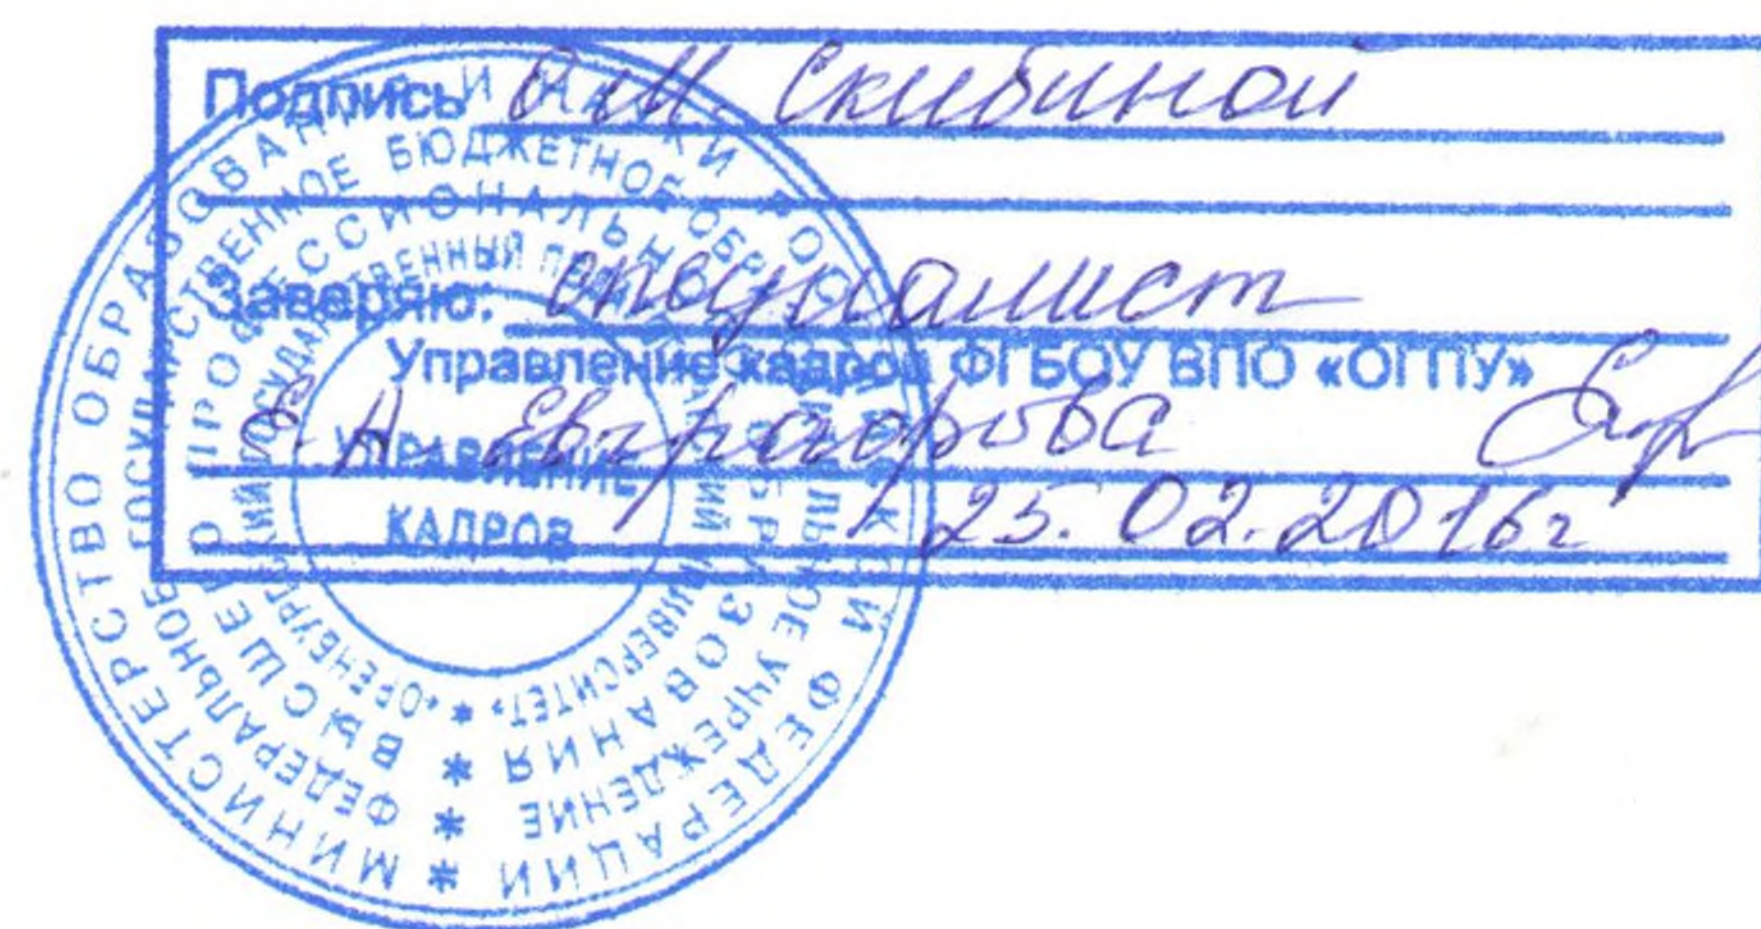 Подпись О.М. Скибиной
Заверяю: специалист
Управление кадров ФГБОУ ВПО «ОГПУ»
Е.Н.
25.02.2016г
МИНИСТЕРСТВО ОБРАЗОВАНИЯ И НАУКИ РОССИЙСКОЙ ФЕДЕРАЦИИ *
ФЕДЕРАЛЬНОЕ ГОСУДАРСТВЕННОЕ БЮДЖЕТНОЕ ОБРАЗОВАТЕЛЬНОЕ УЧРЕЖДЕНИЕ *
ВЫСШЕГО ПРОФЕССИОНАЛЬНОГО ОБРАЗОВАНИЯ *
«ОРЕНБУРГСКИЙ ГОСУДАРСТВЕННЫЙ ПЕДАГОГИЧЕСКИЙ УНИВЕРСИТЕТ» *
УПРАВЛЕНИЕ
КАДРОВ